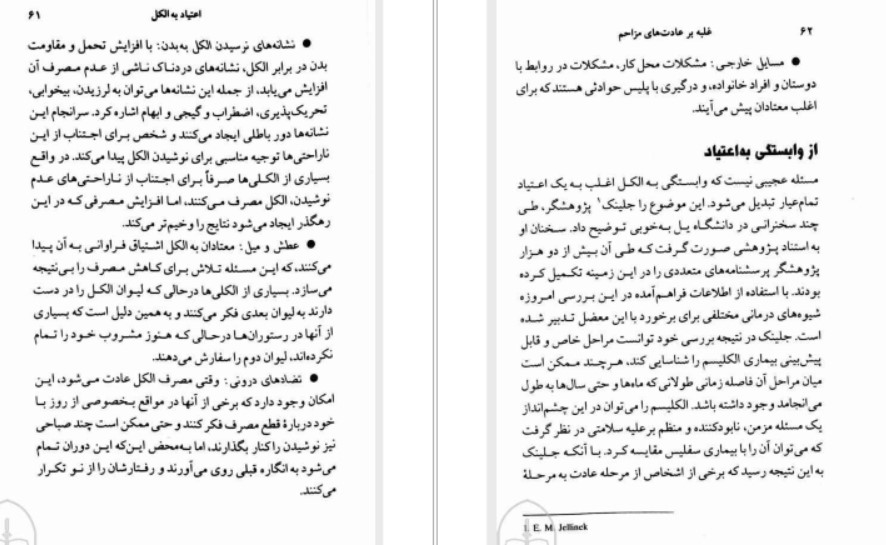 اعتیاد به الکل ۶۱
● نشانه‌های نرسیدن الکل به‌بدن: با افزایش تحمل و مقاومت
بدن در برابر الکل، نشانه‌های دردناک ناشی از عدم مصرف آن
افزایش می‌یابد، از جمله این نشانه‌ها می‌توان به لرزیدن، بیخوابی،
تحریک‌پذیری، اضطراب و گیجی و ابهام اشاره کرد. سرانجام این
نشانه‌ها دور باطلی ایجاد می‌کنند و شخص برای اجتناب از این
ناراحتی‌ها توجیه مناسبی برای نوشیدن الکل پیدا می‌کند. در واقع
بسیاری از الکلی‌ها صرفاً برای اجتناب از ناراحتی‌های عدم
نوشیدن، الکل مصرف می‌کنند، اما افزایش مصرفی که در این
رهگذر ایجاد می‌شود نتایج را وخیم‌تر می‌کند.
● عطش و میل: معتادان به الکل اشتیاق فراوانی به آن پیدا
می‌کنند، که این مسئله تلاش برای کاهش مصرف را بی‌نتیجه
می‌سازد. بسیاری از الکلی‌ها درحالی که لیوان الکل را در دست
دارند به لیوان بعدی فکر می‌کنند و به همین دلیل است که بسیاری
از آنها در رستوران‌ها درحالی که هنوز مشروب خود را تمام
نکرده‌اند، لیوان دوم را سفارش می‌دهند.
● تضادهای درونی: وقتی مصرف الکل عادت می‌شود، این
امکان وجود دارد که برخی از آنها در مواقع بخصوصی از روز با
خود دربارهٔ قطع مصرف فکر کنند و حتی ممکن است چند صباحی
نیز نوشیدن را کنار بگذارند، اما به‌محض این‌که این دوران تمام
می‌شود به انگاره قبلی روی می‌آورند و رفتارشان را از نو تکرار
می‌کنند.
۶۲ غلبه بر عادت‌های مزاحم
● مسایل خارجی: مشکلات محل کار، مشکلات در روابط با
دوستان و افراد خانواده، و درگیری با پلیس حوادثی هستند که برای
اغلب معتادان پیش می‌آیند.
از وابستگی به‌اعتیاد
مسئله عجیبی نیست که وابستگی به الکل اغلب به یک اعتیاد
تمام‌عیار تبدیل می‌شود. این موضوع را جلینک۱ پژوهشگر، طی
چند سخنرانی در دانشگاه یل به‌خوبی توضیح داد. سخنان او
به استناد پژوهشی صورت گرفت که طی آن بیش از دو هزار
پژوهشگر پرسشنامه‌های متعددی را در این زمینه تکمیل کرده
بودند. با استفاده از اطلاعات فراهم‌آمده در این بررسی امروزه
شیوه‌های درمانی مختلفی برای برخورد با این معضل تدبیر شده
است. جلینک در نتیجه بررسی خود توانست مراحل خاص و قابل
پیش‌بینی بیماری الکلیسم را شناسایی کند، هرچند ممکن است
میان مراحل آن فاصله زمانی طولانی که ماه‌ها و حتی سال‌ها به طول
می‌انجامد وجود داشته باشد. الکلیسم را می‌توان در این چشم‌انداز
یک مسئله مزمن، نابودکننده و منظم برعلیه سلامتی در نظر گرفت
که می‌توان آن را با بیماری سفلیس مقایسه کرد. با آنکه جلینک
به این نتیجه رسید که برخی از اشخاص از مرحله عادت به مرحلهٔ
1. E. M. Jellinek